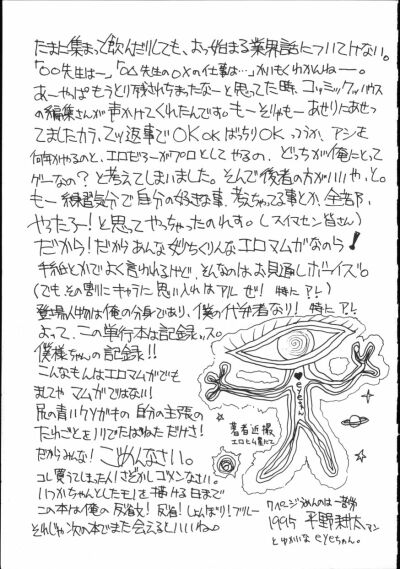 たまに集まって飲んだりしても、おっ始まる業界話についてけない。
「〇〇先生はー」「〇△先生の〇×の仕事は…」かいもくわかんねー。
あーやばもうとり残されちまったなーと思ってた時、コミックハウス
の編集さんが声かけてくれたんです。もーそりゃもーあせりにあせっ
てましたカラ、二ツ返事でOKOKばっちりOK っつうか、アシを
何年かやるのと、エロだろーがプロとしてやるの、どっちが俺にとって
ゲーなの?と考えてしまいました。そんで後者の方がいいや、と。
もー練習気分で自分の好きな事、考えてる事とか、全部、
やったろー!と思ってやっちゃったのれす。(スイマセン皆さん)
だから!だからあんな妙ちくりんなエロマムガなのら!
手紙とかでよく言われるけど、そんなのはお見通しボーイズ。
(でもその割にキャラに思い入れはアルぜ!特にアレ)
登場人物は俺の分身であり、僕の代弁者なり!特にアレ
よって、この単行本は記録ッス。
僕様ちゃんの記録!!
こんなもんはエロマムガでも
ましてやマムガではない!
尻の青いクソガキの自分の主張の
たれごとをノリでたばねただけさ!
だからみんな!ごめんなさい。
コレ買うてしまった人ほどかゴメンなさい。
いつかちゃんとしたモノを描ける日まで
この本は俺の反省文!反省!しょんぼり!ブルー
それじゃ次の本でまた会えるといいね。
eyeちゃん
著者近撮
エロヒム星にて
1ページうめんのは一苦労
1995 平野耕太マン
とゆかいなeyeちゃん。